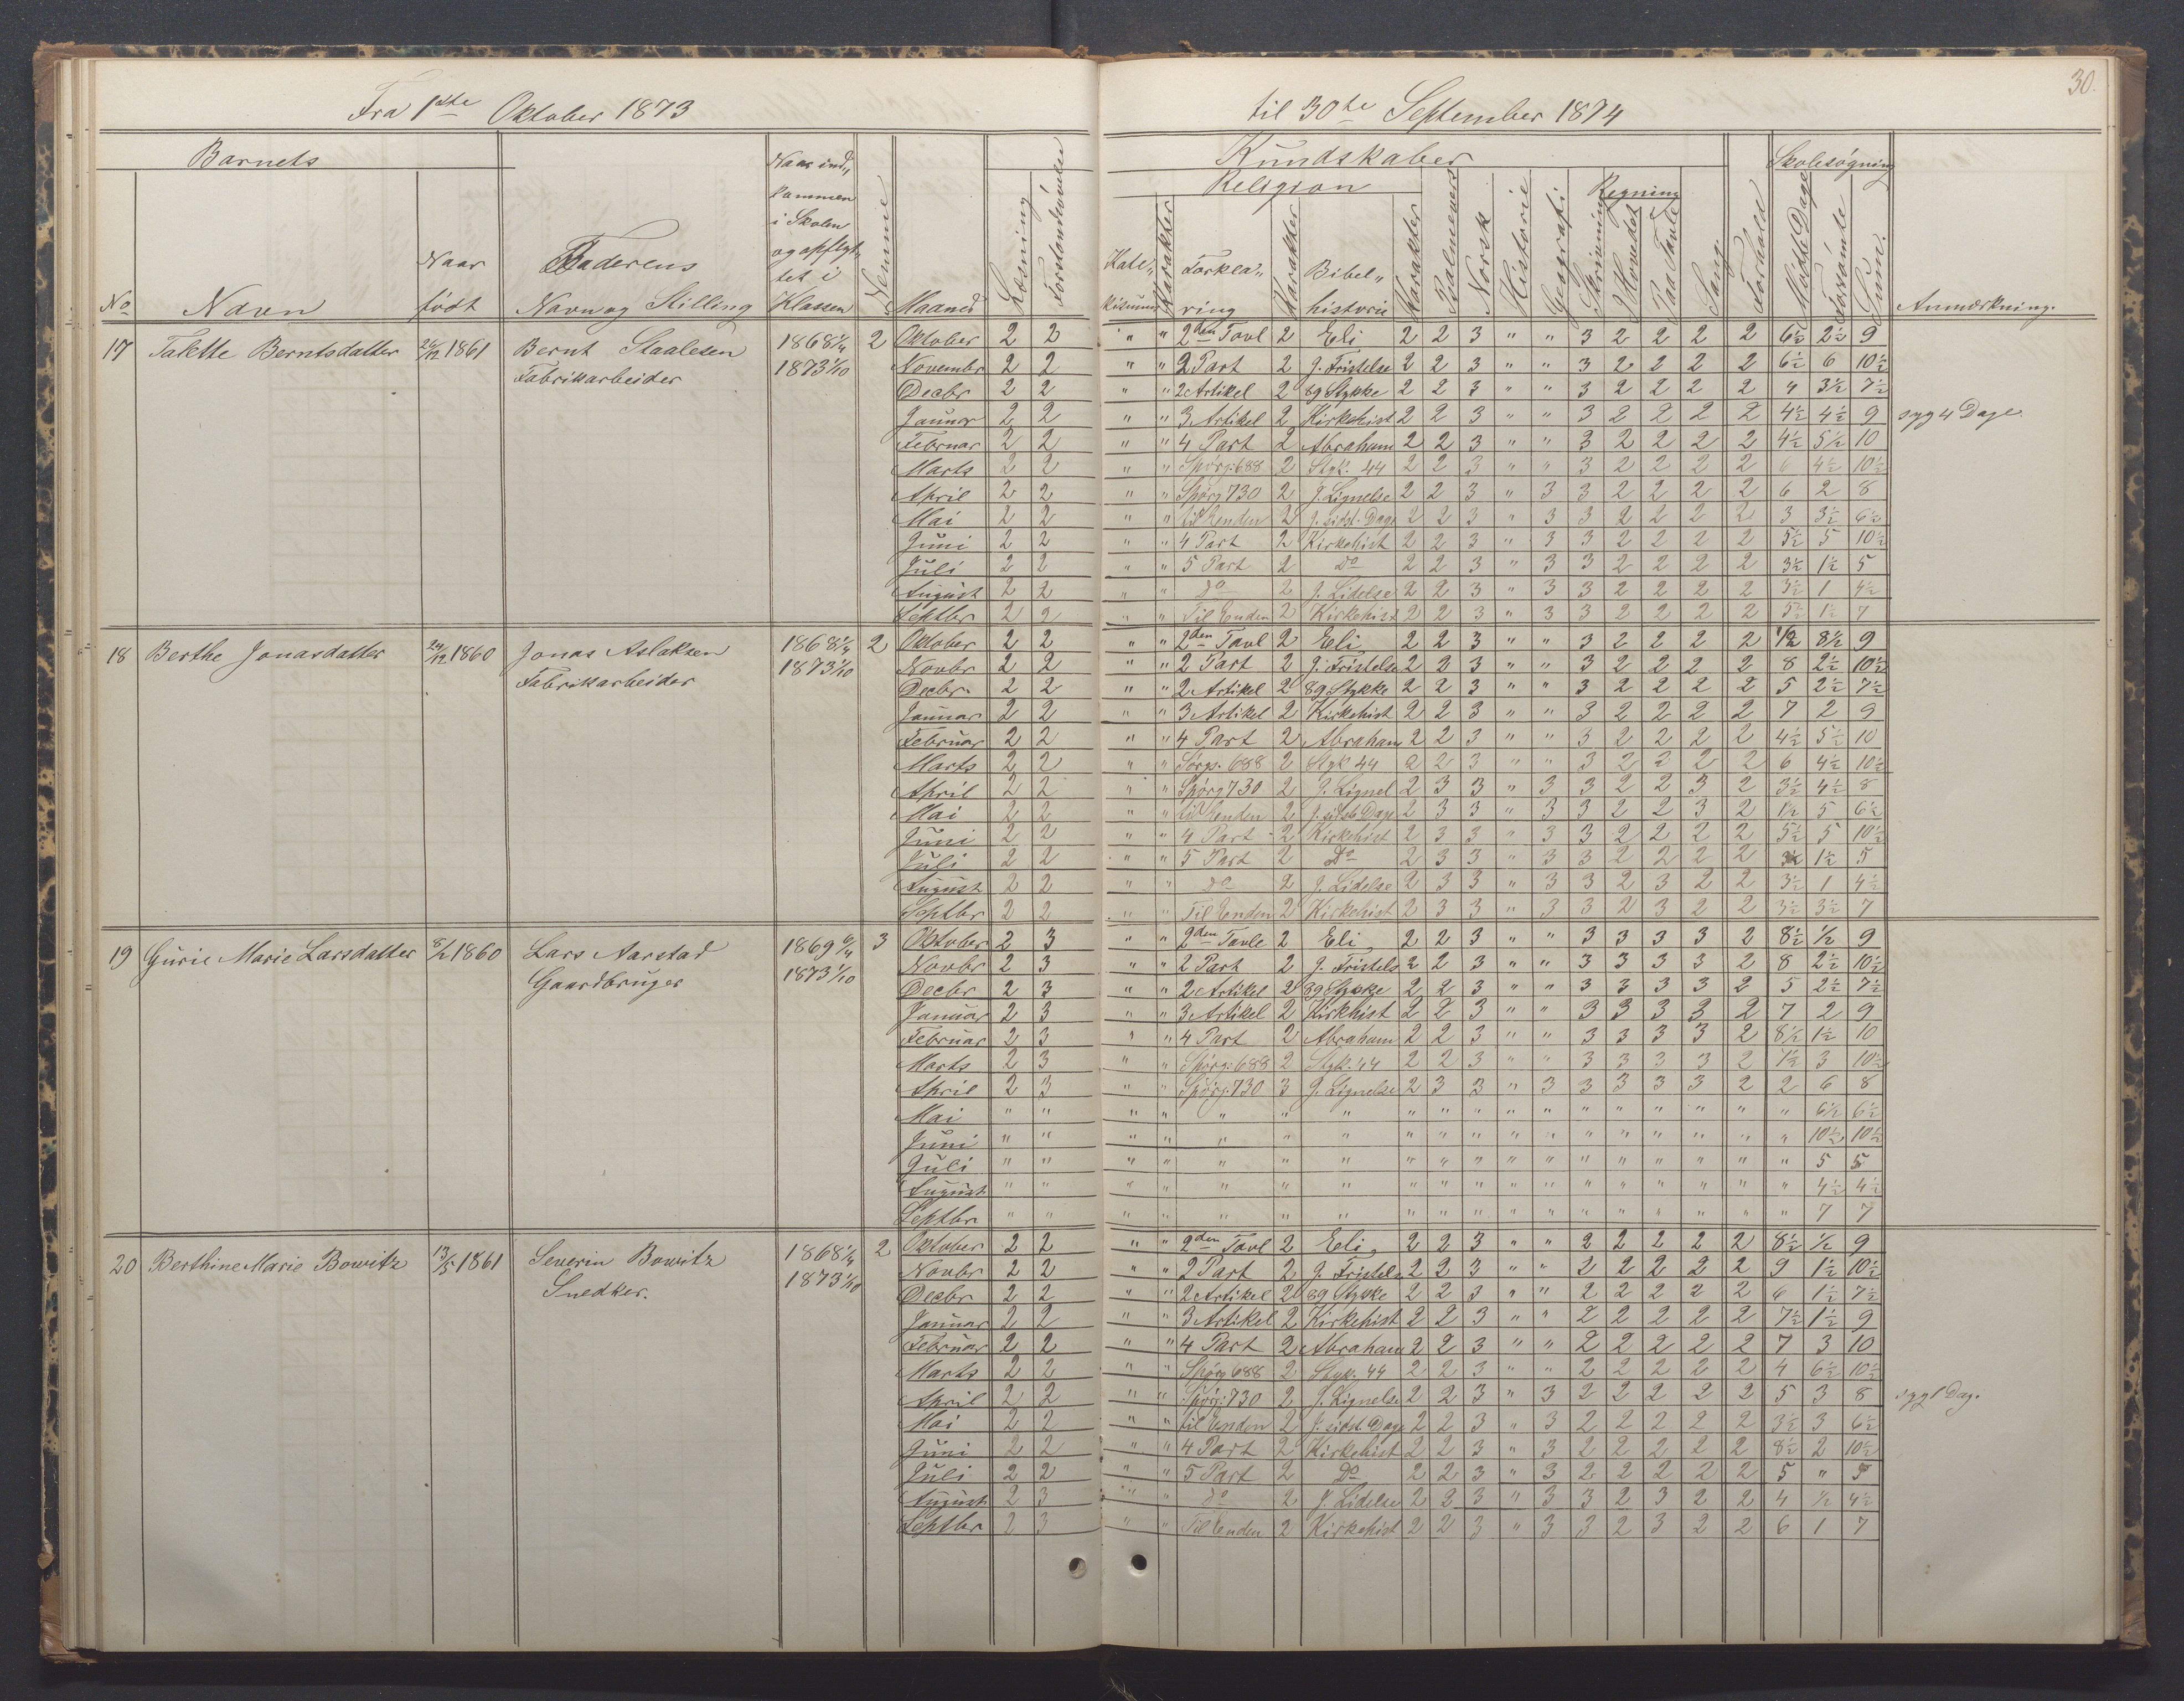 30.
Fra 1ste Oktober 1873 til 30te September 1874
Barnets Kundskaber Skolesøgning
Religion Regning
No Navn Naar født Faderens Navn og Stilling Naar ind„kommen i Skolen og opflyttet i Klassen Nemme Maaned Læsning Forstandsøvelse Kate„kismus Karakter Forkla„ring Karakter Bibel„historie Karakter Psalmevers Norsk Historie Geografi Skrivning I Hovedet Paa Tavle Sang Forhold Mødte Dage Forsømte Sum. Anmærkning.
17 Talette Berntsdatter 26/12 1861 Bernt Staalesen Fabrikarbeider 1868 1/4 1873 1/10 2
Oktober 2 2 " " 2den Tavl 2 Eli 2 2 3 " " 3 2 2 2 2 6½ 2½ 9
Novembr 2 2 " " 2 Part 2 J. Fristelse 2 2 3 " " 3 2 2 2 2 6½ 6 10½
Decbr 2 2 " " 2 Artikel 2 89 Stykke 2 2 3 " " 3 2 2 2 2 4 3½ 7½
Januar 2 2 " " 3 Artikel 2 Kirkehist 2 2 3 " " 3 2 2 2 2 4½ 4½ 9 syg 4 Dage.
Februar 2 2 " " 4 Part 2 Abraham 2 2 3 " " 3 2 2 2 2 4½ 5½ 10
Marts 2 2 " " Spørg: 688 2 Styk. 44 2 2 3 " " 3 2 2 2 2 6 4½ 10½
April 2 2 " " Spørg 730 2 J. Lignelse 2 2 3 " 3 3 2 2 2 2 6 2 8
Mai 2 2 " " til Enden 2 J. sidst. Dage 2 2 3 " 3 3 2 2 2 2 3 3½ 6½
Juni 2 2 " " 4 Part 2 Kirkehist 2 2 3 " 3 3 2 2 2 2 5½ 5 10½
Juli 2 2 " " 5 Part 2 Do 2 2 3 " 3 3 2 2 2 2 3½ 1½ 5
August 2 2 " " do 2 J. Lidelse 2 2 3 " 3 3 2 2 2 2 3½ 1 4½
Septbr 2 2 " " Til Enden 2 Kirkehist 2 2 3 " 3 3 2 2 2 2 5½ 1½ 7
18 Berthe Jonasdatter 29/12 1860 Jonas Aslaksen Fabrikarbeider 1868 1/4 1873 1/10 2
Oktober 2 2 " " 2den Tavl 2 Eli 2 2 3 " " 3 2 2 2 2 ½ 8½ 9
Novbr 2 2 " " 2 Part 2 J. Fristelse 2 2 3 " " 3 2 2 2 2 8 2½ 10½
Decbr. 2 2 " " 2 Artikel 2 89 Stykke 2 2 3 " " 3 2 2 2 2 5 2½ 7½
Januar 2 2 " " 3 Artikel 2 Kirkehist 2 2 3 " " 3 2 2 2 2 7 2 9
Februar 2 2 " " 4 Part 2 Abraham 2 2 3 " " 3 2 2 2 2 4½ 5½ 10
Marts 2 2 " " Sørg. 688 2 Styk 44 2 2 3 " " 3 2 2 2 2 6 4½ 10½
April 2 2 " " Spørg 730 2 J. Lignel 2 3 3 " 3 3 2 2 3 2 3½ 4½ 8
Mai 2 2 " " til Enden 2 J. sidst Dage 2 3 3 " 3 3 2 2 3 2 1½ 5 6½
Juni 2 2 " " 4 Part 2 Kirkehist 2 3 3 " 3 3 2 2 2 2 5½ 5 10½
Juli 2 2 " " 5 Part 2 Do 2 3 3 " 3 3 2 2 2 2 3½ 1½ 5
August 2 2 " " do 2 J. Lidelse 2 3 3 " 3 3 2 3 2 2 3½ 1 4½
Septbr 2 2 " " Til Enden 2 Kirkehist 2 3 3 " 3 3 2 3 2 2 3½ 3½ 7
19 Gurie Marie Larsdatter 8/2 1860 Lars Aarstad Gaardbruger 1869 6/4 1873 1/10 3
Oktober 2 3 " " 2den Tavle 2 Eli 2 2 3 " " 3 3 3 3 2 8½ ½ 9
Novbr 2 3 " " 2 Part 2 J. Fristels 2 2 3 " " 3 3 3 3 2 8 2½ 10½
Decbr 2 3 " " 2 Artikel 2 89 Stykke 2 2 3 " " 3 3 3 3 2 5 2½ 7½
Januar 2 3 " " 3 Artikel 2 Kirkhist 2 2 3 " " 3 3 3 3 2 7 2 9
Februar 2 3 " " 4 Part 2 Abraham 2 2 3 " " 3 3 3 3 2 8½ 1½ 10
Marts 2 3 " " Spørg: 688 2 Styk. 44 2 2 3 " " 3 3 3 3 2 7½ 3 10½
April 2 3 " " Spørg: 730 3 J. Lignelse 2 3 3 " 3 3 3 3 3 2 2 6 8
Mai " " " " " " " " " " " " " " " " " " 6½ 6½
Juni " " " " " " " " " " " " " " " " " " 10½ 10½
Juli " " " " " " " " " " " " " " " " " " 5 5
August " " " " " " " " " " " " " " " " " " 4½ 4½
Septbr " " " " " " " " " " " " " " " " " " 7 7
20 Berthine Marie Bowitz 13/5 1861 Severin Bowitz Snedker. 1868 1/4 1873 1/10 2
Oktober 2 2 " " 2den Tavl 2 Eli 2 2 3 " " 2 2 2 2 2 8½ ½ 9
Novbr 2 2 " " 2 Part 2 J. Fristels 2 2 3 " " 2 2 2 2 2 9 1½ 10½
Decbr 2 2 " " 2 Artikel 2 89 Stykke 2 2 3 " " 2 2 2 2 2 6 1½ 7½
Januar 2 2 " " 3 Artikel 2 Kirkehist 2 2 3 " " 2 2 2 2 2 7½ 1½ 9
Februar 2 2 " " 4 Part 2 Abraham 2 2 3 " " 2 2 2 2 2 7 3 10
Marts 2 2 " " Spørg 688 2 Styk. 44 2 2 3 " " 2 2 2 2 2 4 6½ 10½
April 2 2 " " Spørg: 730 2 J. Lignelse 2 2 3 " 3 2 2 2 2 2 5 3 8 syg 1 Dag.
Mai 2 2 " " til Enden 2 J. sidst. Dage 2 2 3 " 3 2 2 2 2 2 3½ 3 6½
Juni 2 2 " " 4 Part 2 Kirkehist 2 2 3 " 3 2 2 2 2 2 8½ 2 10½
Juli 2 2 " " 5 Part 2 Do 2 2 3 " 3 2 2 2 2 2 5 " 5
August 2 3 " " do 2 J. Lidelse 2 2 3 " 3 3 2 3 2 2 4 ½ 4½
Septbr 2 3 " " Til Enden 2 Kirkehist 2 2 3 " 3 3 2 3 2 2 6 1 7